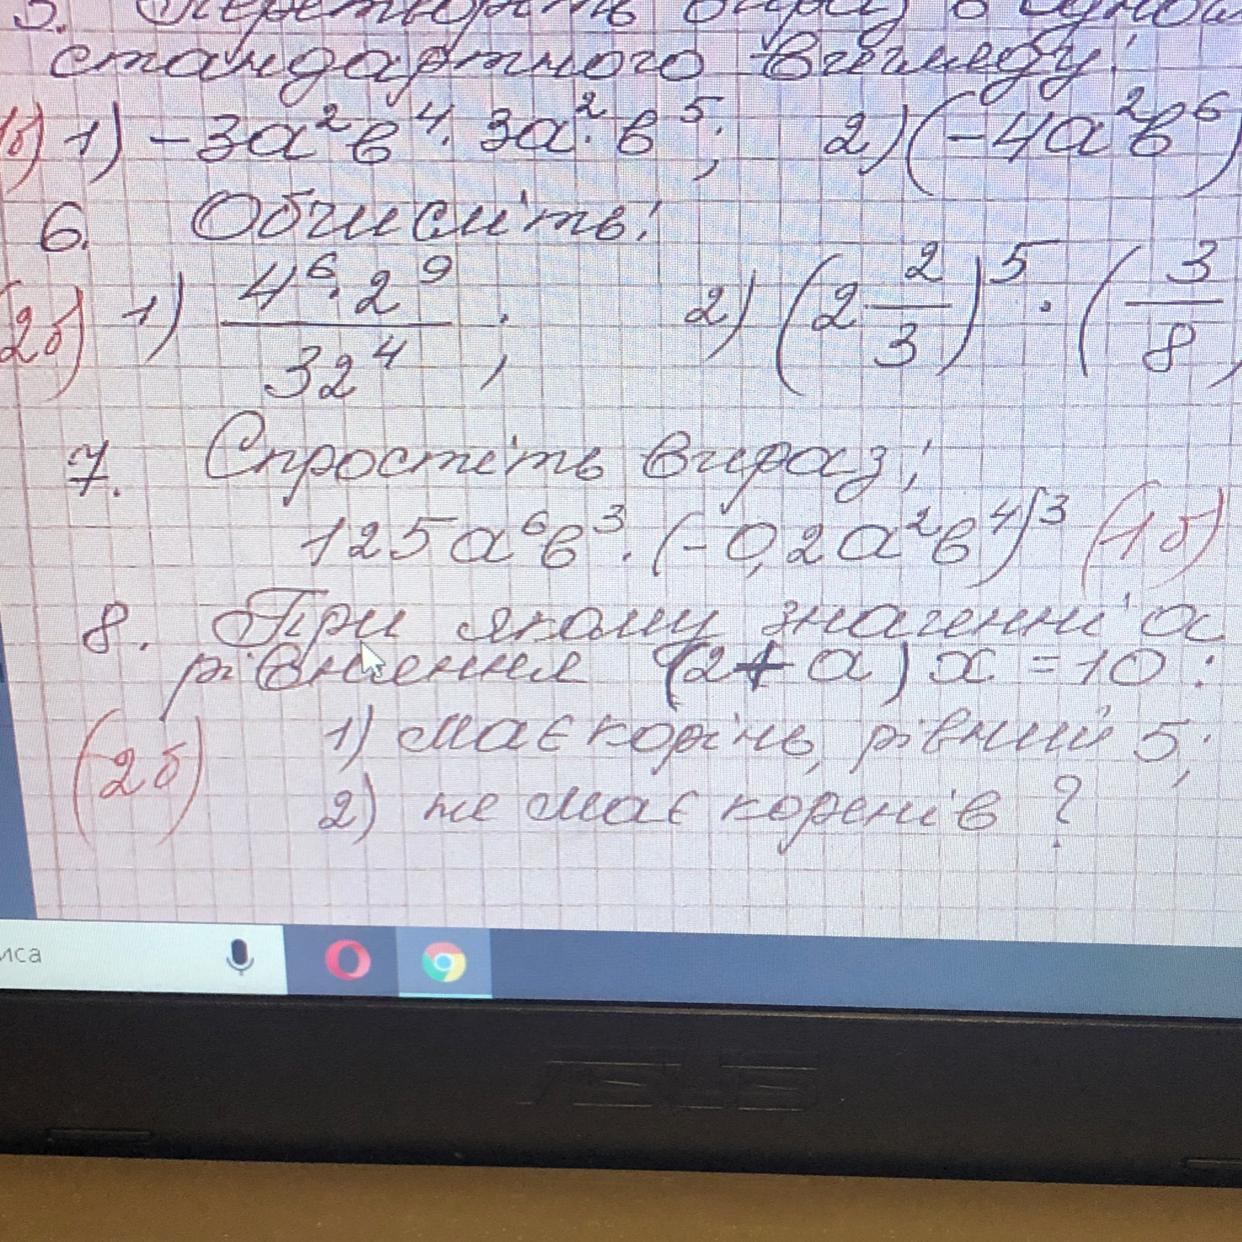 5. Перетворіть вираз в одночлен
стандартного вигляду:
1) -3a²b⁴ · 3a² · b⁵; 2) (-4a²b⁶)
6. Обчисліть:
(2б) 1) 4⁶·2⁹/32⁴; 2) (2 2/3)⁵ · (3/8
7. Спростіть вираз:
125a⁶b³ · (-0,2a²b⁴)³ (1б)
8. При якому значенні a
рівняння (2+a)x = 10:
1) має корінь, рівний 5;
(2б)
2) не має коренів?
иса
ASUS